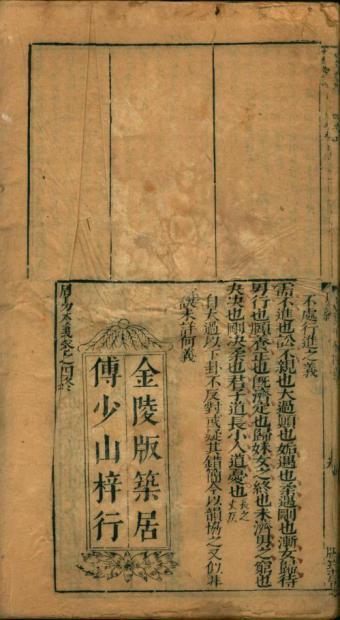 不處行進之義
需不進也訟不親也大過顚也姤遇也柔遇剛也漸女歸待
男行也頤養正也旣濟定也歸妹女之終也未濟男之窮也
夬决也剛决柔也君子道長小人道憂也長之丈反
自大過以下卦不反對或疑其錯簡今以韻協之又似非
誤未詳何義
金陵版築居
傅少山梓行
周易本義卷之四終